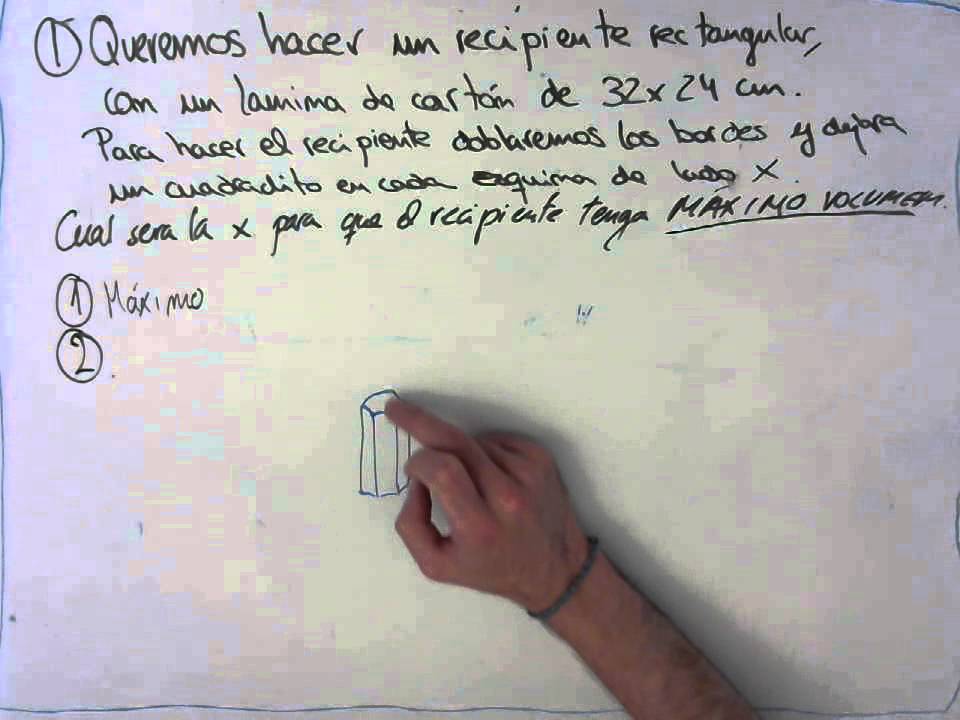 ① Queremos hacer un recipiente rectangular,
con un lamina de cartón de 32x24 cm.
Para hacer el recipiente doblaremos los bordes y dejara
un cuadradito en cada esquina de lado x.
Cual sera la x para que el recipiente tenga MÁXIMO VOLUMEN.
① Máximo
②